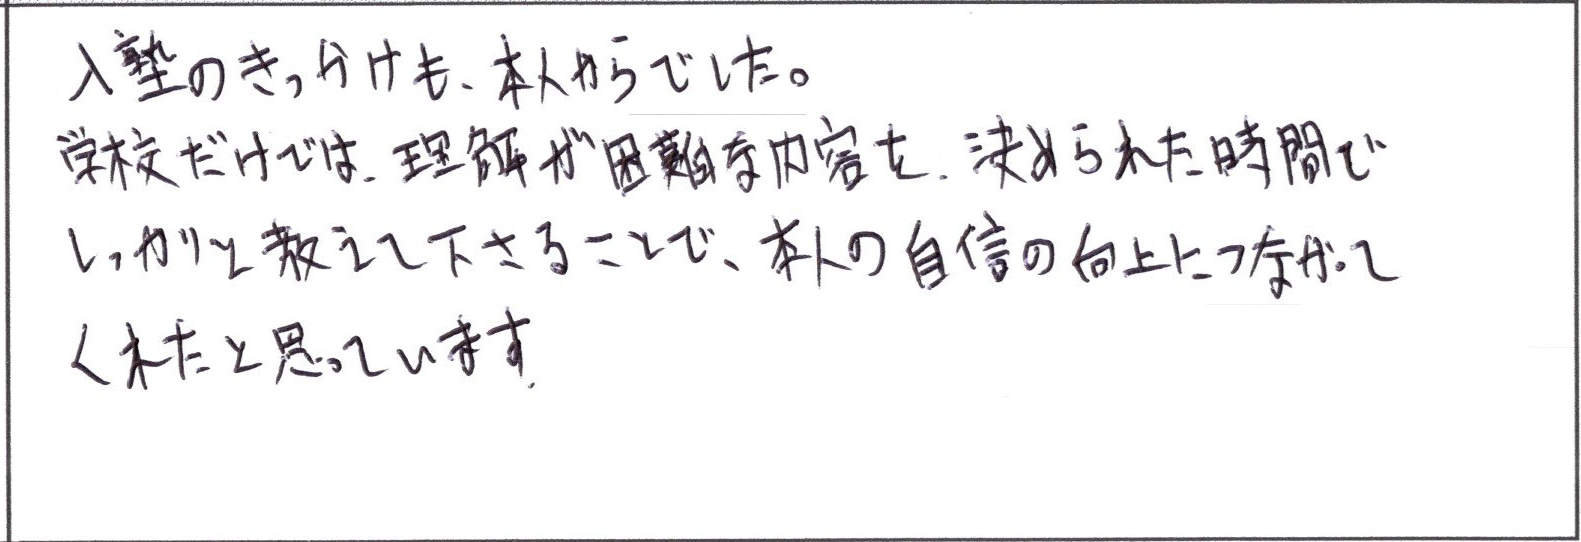 入塾のきっかけも、本人からでした。
学校だけでは、理解が困難な内容を、決められた時間で
しっかりと教えて下さることで、本人の自信の向上につながって
くれたと思っています。